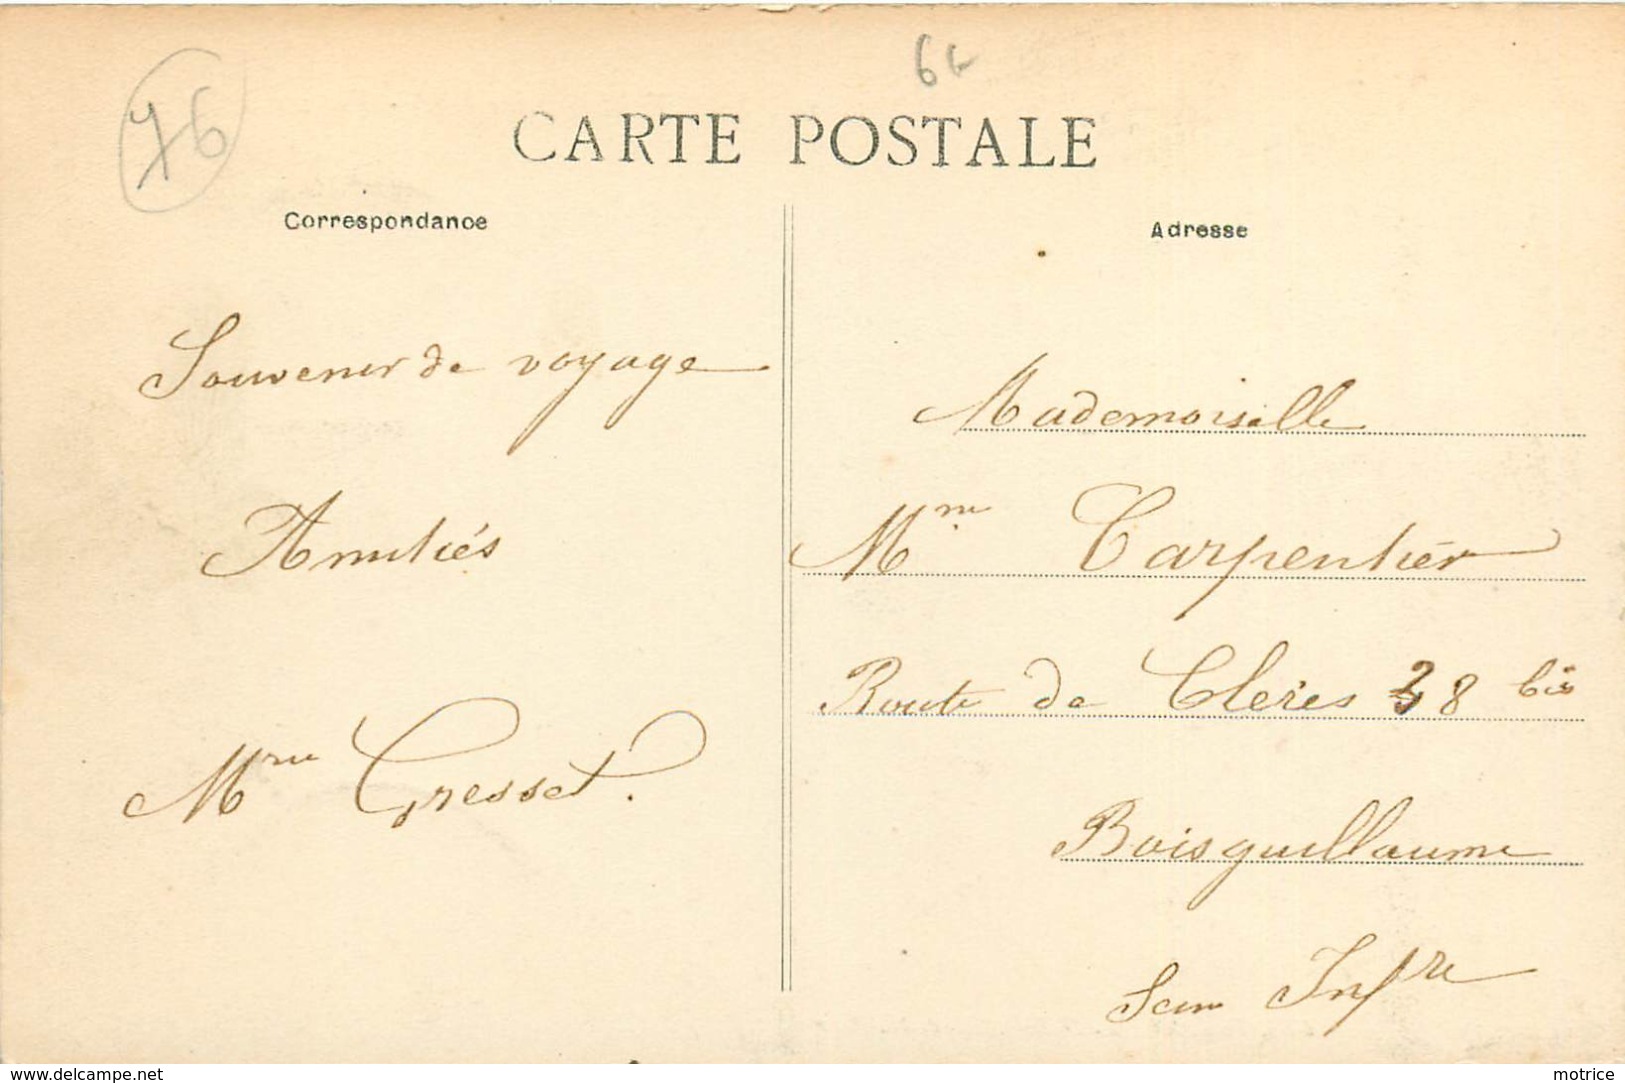 76
6€
CARTE POSTALE
Correspondance
Adresse
Souvenir de voyage
Amitiés
Mme Gresset.
Mademoiselle
Mme Carpentier
Route de Cleres 38 bis
Boisguillaume
Sein Infre
www.delcampe.net
motrice